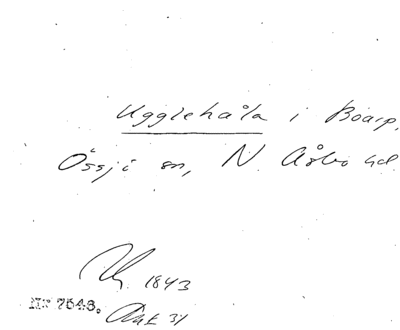 Ugglehåla i Boarp,
Össjö sn, N. Åsbo hd.
1843
Nr 7548. Akt 31